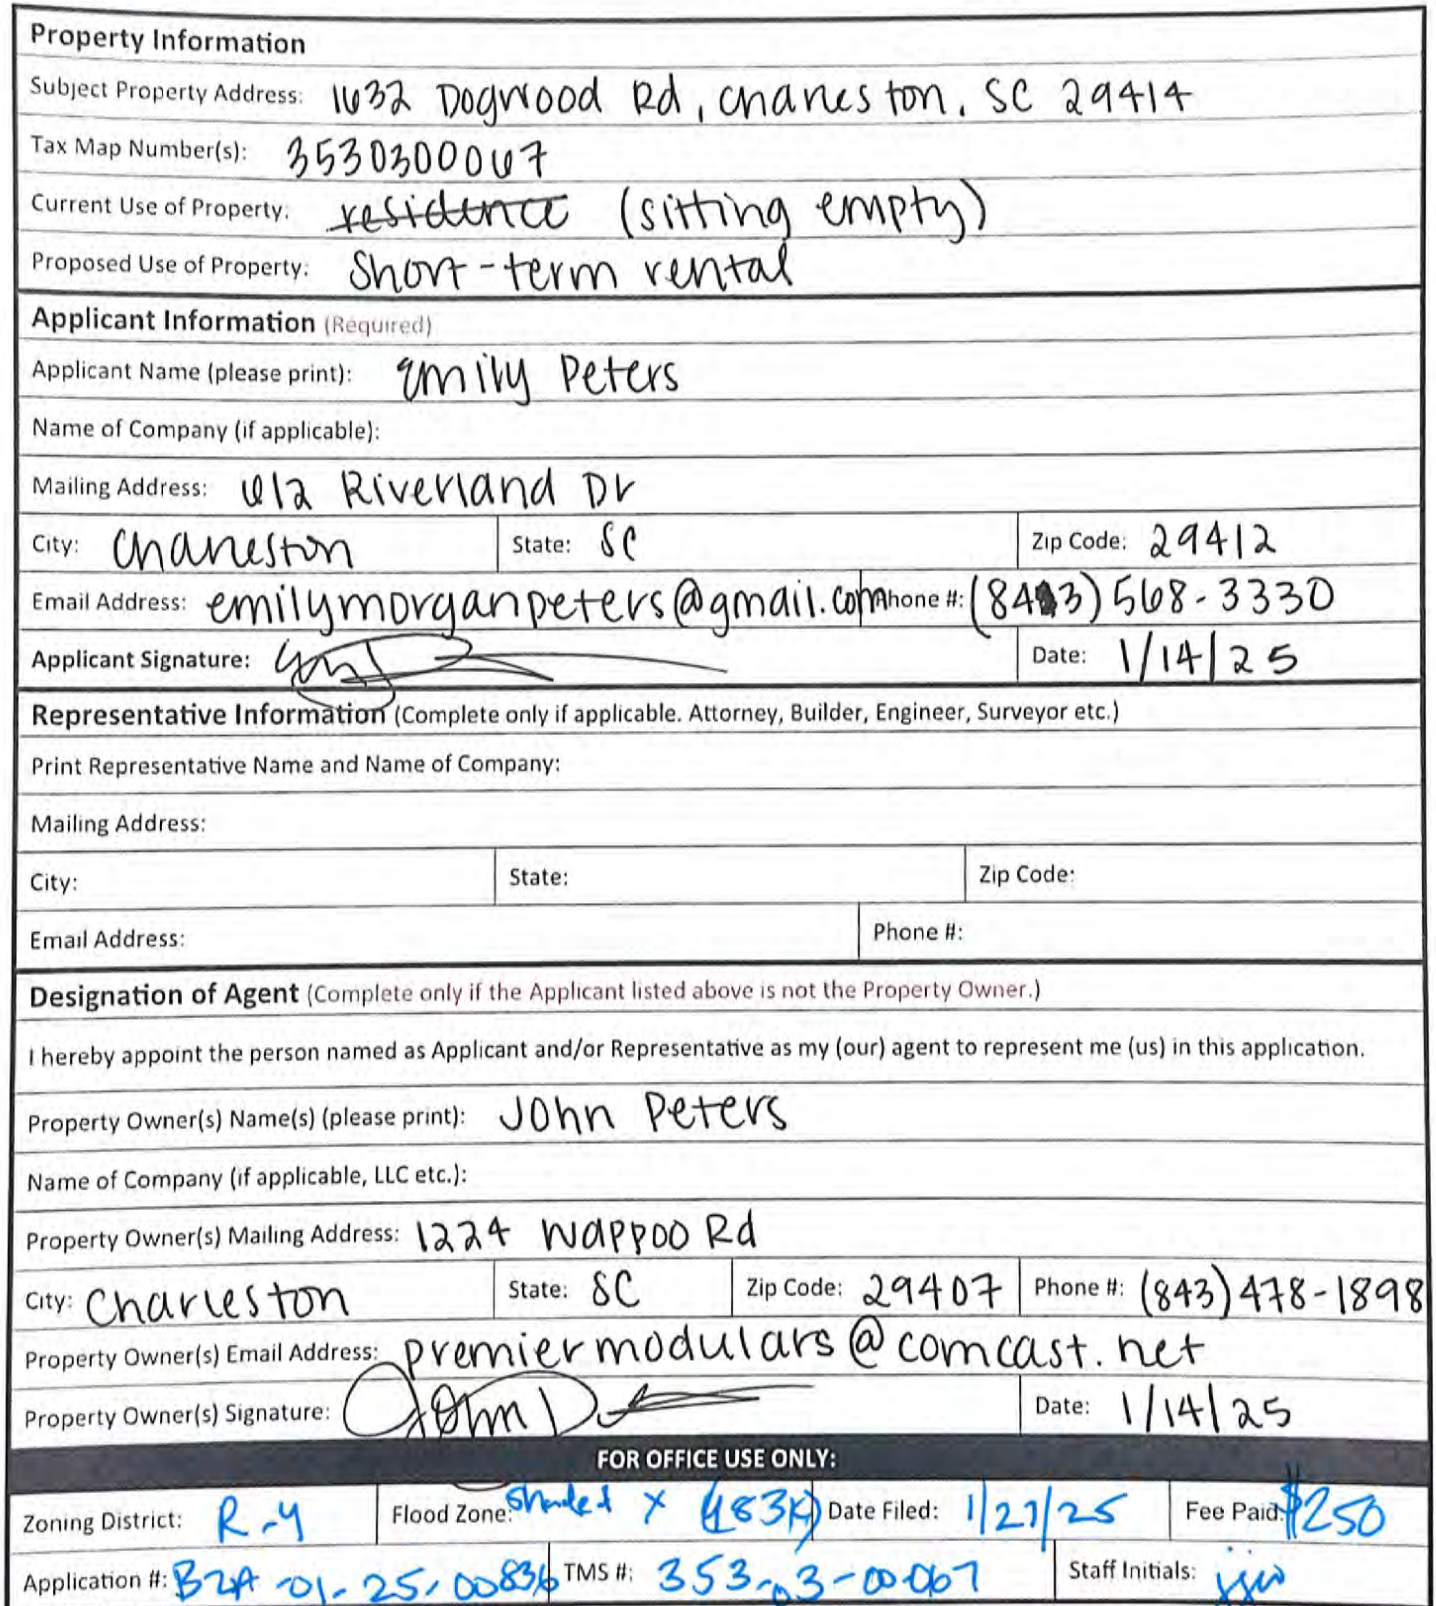 Property Information
Subject Property Address: 1632 Dogwood Rd, Charleston, SC 29414
Tax Map Number(s): 3530300067
Current Use of Property: residence (sitting empty)
Proposed Use of Property: Short-term rental
Applicant Information (Required)
Applicant Name (please print): Emily Peters
Name of Company (if applicable):
Mailing Address: 612 Riverland Dr
City: Charleston State: SC Zip Code: 29412
Email Address: emilymorganpeters@gmail.com Phone #: (843) 568-3330
Applicant Signature: Date: 1/14/25
Representative Information (Complete only if applicable. Attorney, Builder, Engineer, Surveyor etc.)
Print Representative Name and Name of Company:
Mailing Address:
City: State: Zip Code:
Email Address: Phone #:
Designation of Agent (Complete only if the Applicant listed above is not the Property Owner.)
I hereby appoint the person named as Applicant and/or Representative as my (our) agent to represent me (us) in this application.
Property Owner(s) Name(s) (please print): John Peters
Name of Company (if applicable, LLC etc.):
Property Owner(s) Mailing Address: 1224 Wappoo Rd
City: Charleston State: SC Zip Code: 29407 Phone #: (843) 478-1898
Property Owner(s) Email Address: premiermodulars@comcast.net
Property Owner(s) Signature: John Date: 1/14/25
FOR OFFICE USE ONLY:
Zoning District: R-4 Flood Zone: Shaded X (483K) Date Filed: 1/27/25 Fee Paid: $250
Application #: BZA-01-25-00836 TMS #: 353-03-00-067 Staff Initials: jjw